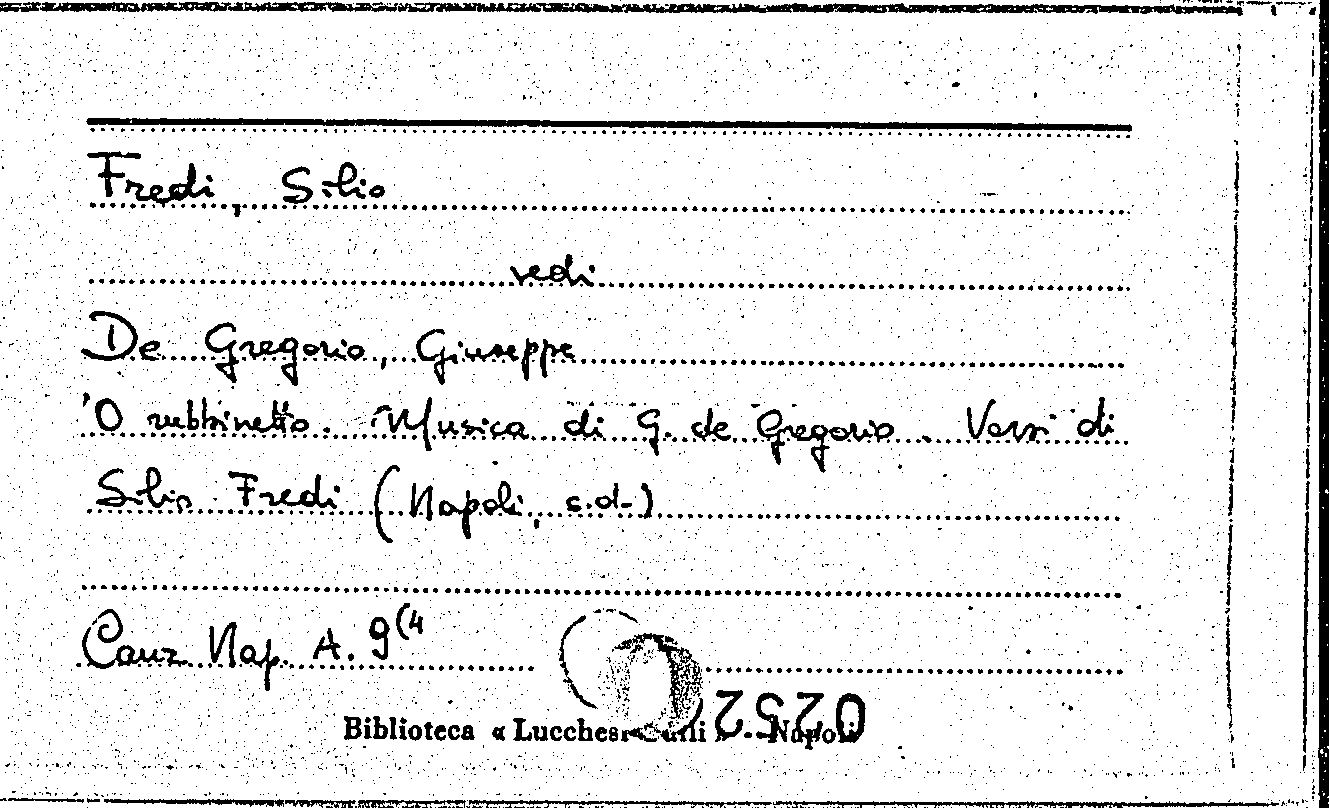 Fredi, Silio
vedi
De Gregorio, Giuseppe
'O rubbinetto. Musica di G. de Gregorio. Versi di
Silio Fredi (Napoli, s.d.)
Canz. Nap. A. 9(4
Biblioteca « Lucchesi Palli » - Napoli